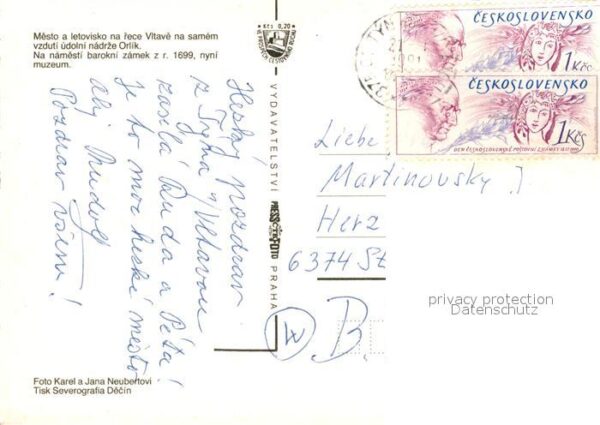 Město a letovisko na řece Vltavě na samém
vzdutí údolní nádrže Orlík.
Na náměstí barokní zámek z r. 1699, nyní
muzeum.
Kčs 0,20
Hezký pozdrav
z Týna n/Vltavou
zaslá Ruda a Péťa!
Je to moc hezké město
Ahoj Rudolf
Pozdrav všem!
Foto Karel a Jana Neubertovi
Tisk Severografia Děčín
VYDAVATELSTVÍ
PRESSFOTO
PRAHA
ČESKOSLOVENSKO
1 Kčs
ČESKOSLOVENSKO
1 Kčs
DEN ČESKOSLOVENSKÉ POŠTOVNÍ ZNÁMKY 18.12.1990
Liebe
Martinovsky J
Herz
6374 St
B.
privacy protection
Datenschutz